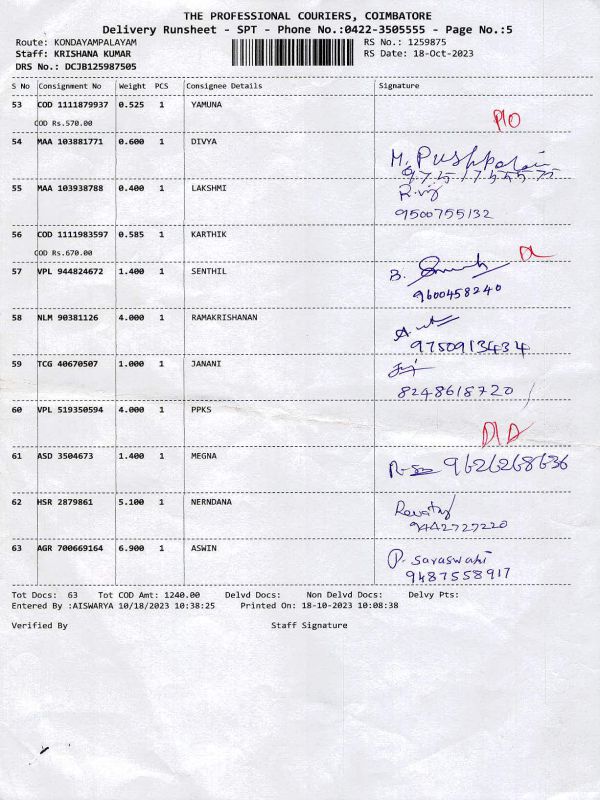 THE PROFESSIONAL COURIERS, COIMBATORE
Delivery Runsheet - SPT - Phone No.:0422-3505555 - Page No.:5
Route: KONDAYAMPALAYAM RS No.: 1259875
Staff: KRISHANA KUMAR RS Date: 18-Oct-2023
DRS No.: DCJB125987505
S No Consignment No Weight PCS Consignee Details Signature
53 COD 1111879937 0.525 1 YAMUNA
COD Rs.570.00
54 MAA 103881771 0.600 1 DIVYA
M. Pushpa
55 MAA 103938788 0.400 1 LAKSHMI
9500755132
56 COD 1111983597 0.585 1 KARTHIK
COD Rs.670.00
57 VPL 944824672 1.400 1 SENTHIL B.
9600458240
58 NLM 90381126 4.000 1 RAMAKRISHANAN
9750913434
59 TCG 40670507 1.000 1 JANANI
8248618720
60 VPL 519350594 4.000 1 PPKS
61 ASD 3504673 1.400 1 MEGNA 9626268636
62 HSR 2879861 5.100 1 NERNDANA Revathy
9442727220
63 AGR 700669164 6.900 1 ASWIN P. Saraswathi
9487558917
Tot Docs: 63 Tot COD Amt: 1240.00 Delvd Docs: Non Delvd Docs: Delvy Pts:
Entered By :AISWARYA 10/18/2023 10:38:25 Printed On: 18-10-2023 10:08:38
Verified By Staff Signature